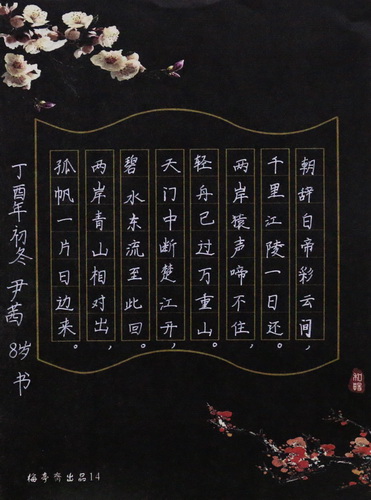 朝辞白帝彩云间，
千里江陵一日还。
两岸猿声啼不住，
轻舟已过万重山。
天门中断楚江开，
碧水东流至此回。
两岸青山相对出，
孤帆一片日边来。
丁酉年初冬尹茜8岁书
梅亭斋出品14